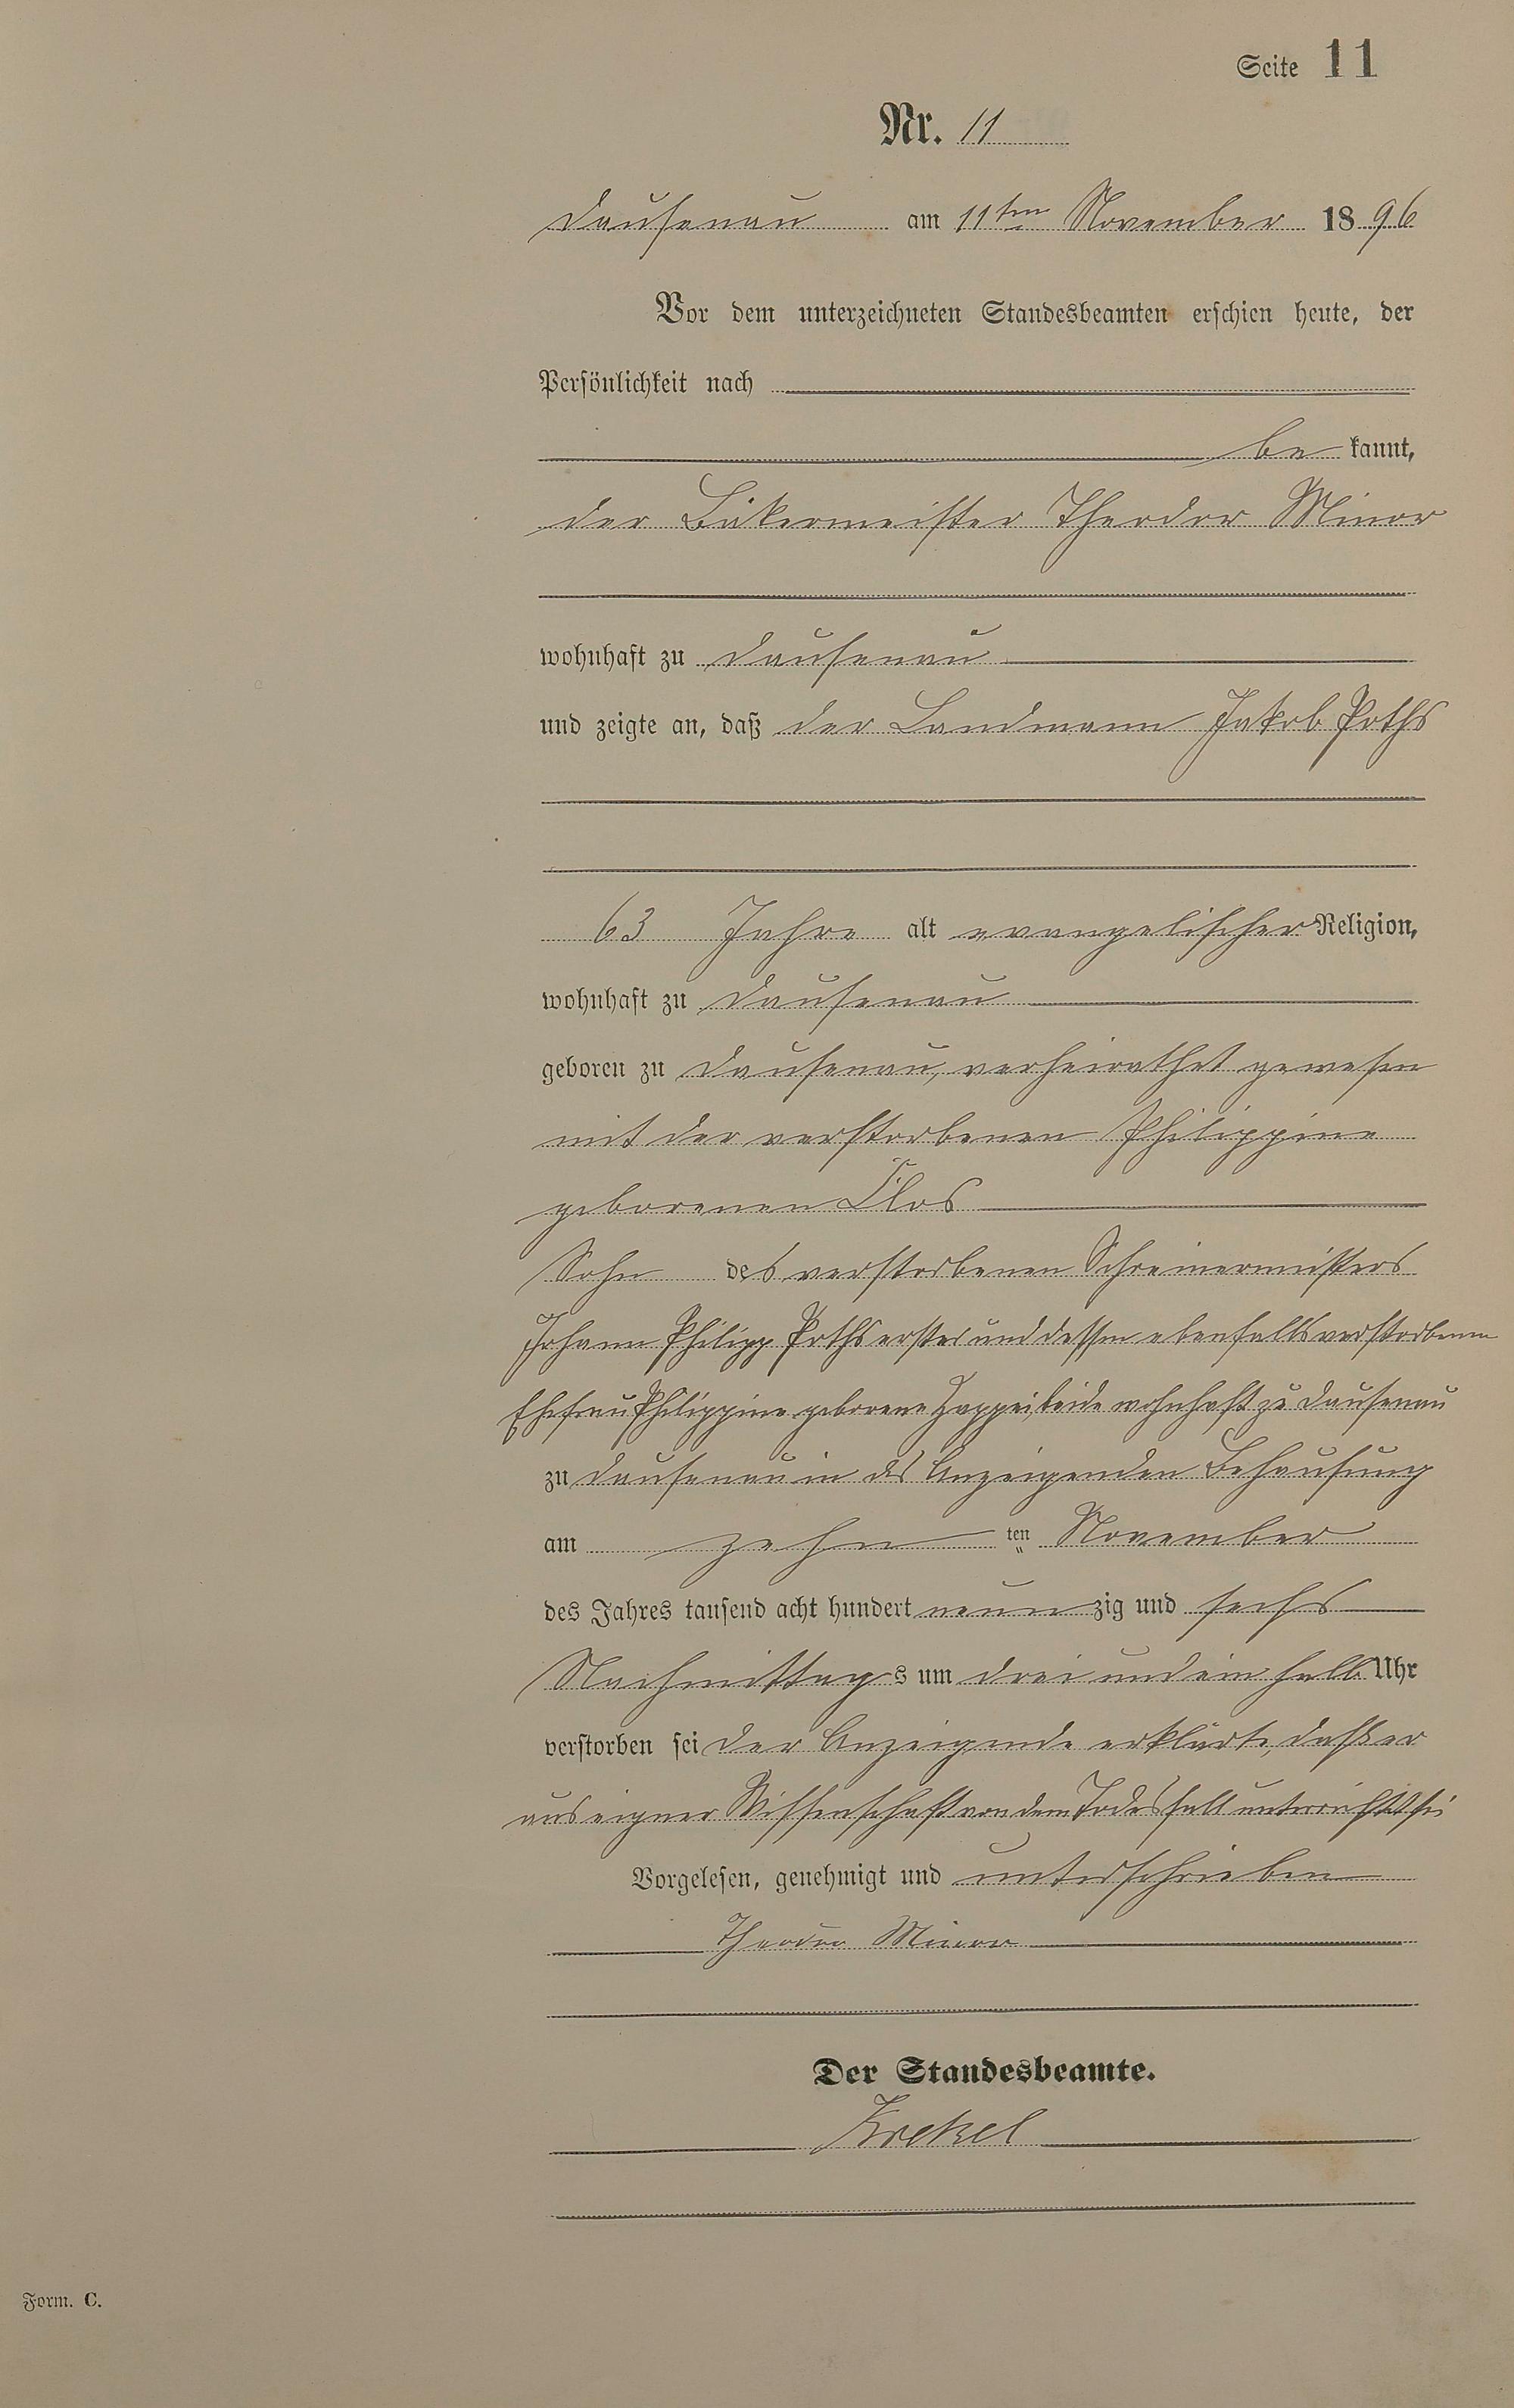 Seite 11
Nr. 11
Dausenau am 11ten November 1896
Vor dem unterzeichneten Standesbeamten erschien heute, der
Persönlichkeit nach
be kannt,
der Bäkermeister Theodor Minor
wohnhaft zu Dausenau
und zeigte an, daß der Landmann Jakob Poths
63 Jahre alt evangelischer Religion,
wohnhaft zu Dausenau
geboren zu Dausenau, verheirathet gewesen
mit der verstorbenen Philippine
geborenen Clos
Sohn des verstorbenen Schreinermeisters
Johann Philipp Poths erster und dessen ebenfalls verstorbenen
Ehefrau Philippine geborene Zappei, beide wohnhaft zu Dausenau
zu Dausenau in des Anzeigenden Behausung
am zehn ten November
des Jahres tausend acht hundert neun zig und sechs
Nachmittag s um drei und ein halb Uhr
verstorben sei der Anzeigende erklärte, daß er
aus eigner Wissenschaft von dem Todesfall unterrichtet sei
Vorgelesen, genehmigt und unterschrieben
Theodor Minor
Der Standesbeamte.
Krekel
Form. C.